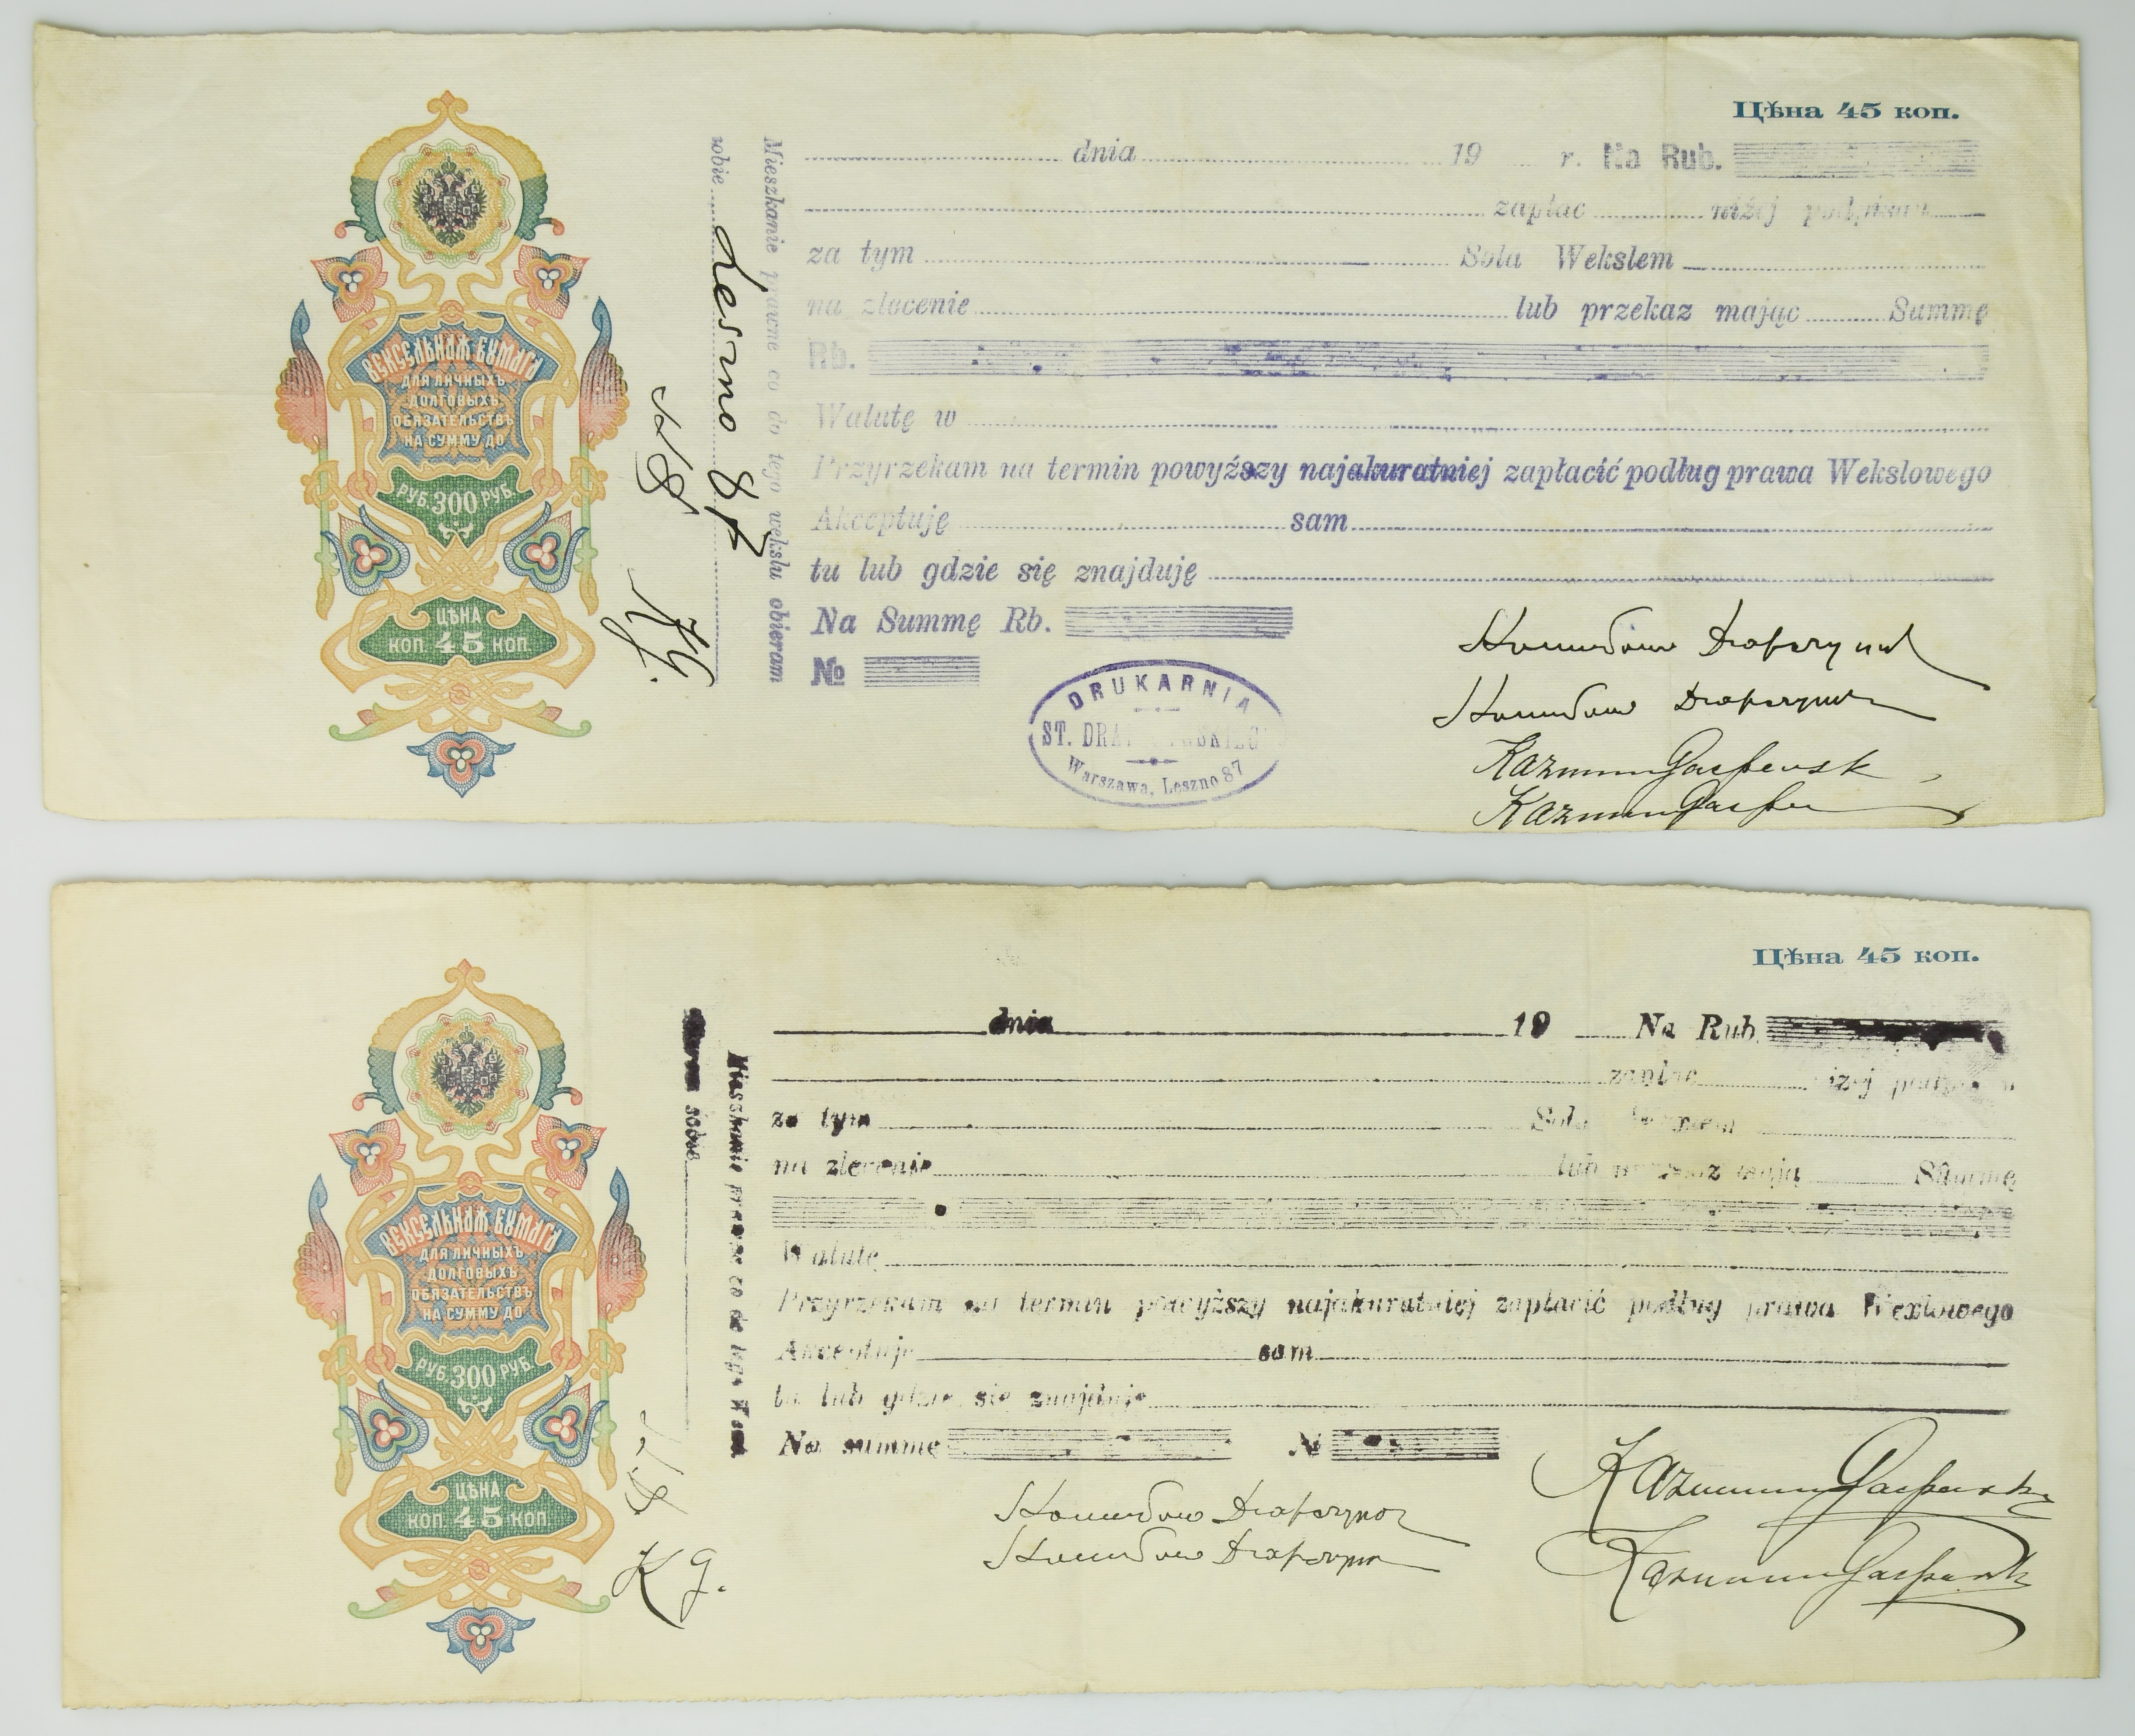 Цѣна 45 коп.
dnia 19 r. Na Rub.
zapłac niżej podpisan
za tym Sola Wekslem
na zlecenie lub przekaz mając Summę
Rb.
Walutę w
Przyrzekam na termin powyższy najakuratniej zapłacić podług prawa Wekslowego
Akceptuję sam
tu lub gdzie się znajduję
Na Summę Rb.
№
DRUKARNIA
ST.
Warszawa, Leszno 87
Mieszkanie prawne co do tego wekslu obieram
sobie Leszno 87
KG.
ВЕКСЕЛЬНАЯ БУМАГА
ДЛЯ ЛИЧНЫХЪ
ДОЛГОВЫХЪ
ОБЯЗАТЕЛЬСТВЪ
НА СУММУ ДО
РУБ. 300 РУБ.
ЦѢНА
КОП. 45 КОП.
Цѣна 45 коп.
dnia 19 Na Rub.
zapłac
za tym Sola
na zlecenie lub Summę
Walutę
Przyrzekam na termin powyższy najakuratniej zapłacić podług prawa Wexlowego
Akceptuję sam
tu lub gdzie się znajduję
Na summę №
Mieszkanie prawne co do tego
sobie
KG.
ВЕКСЕЛЬНАЯ БУМАГА
ДЛЯ ЛИЧНЫХЪ
ДОЛГОВЫХЪ
ОБЯЗАТЕЛЬСТВЪ
НА СУММУ ДО
РУБ. 300 РУБ.
ЦѢНА
КОП. 45 КОП.